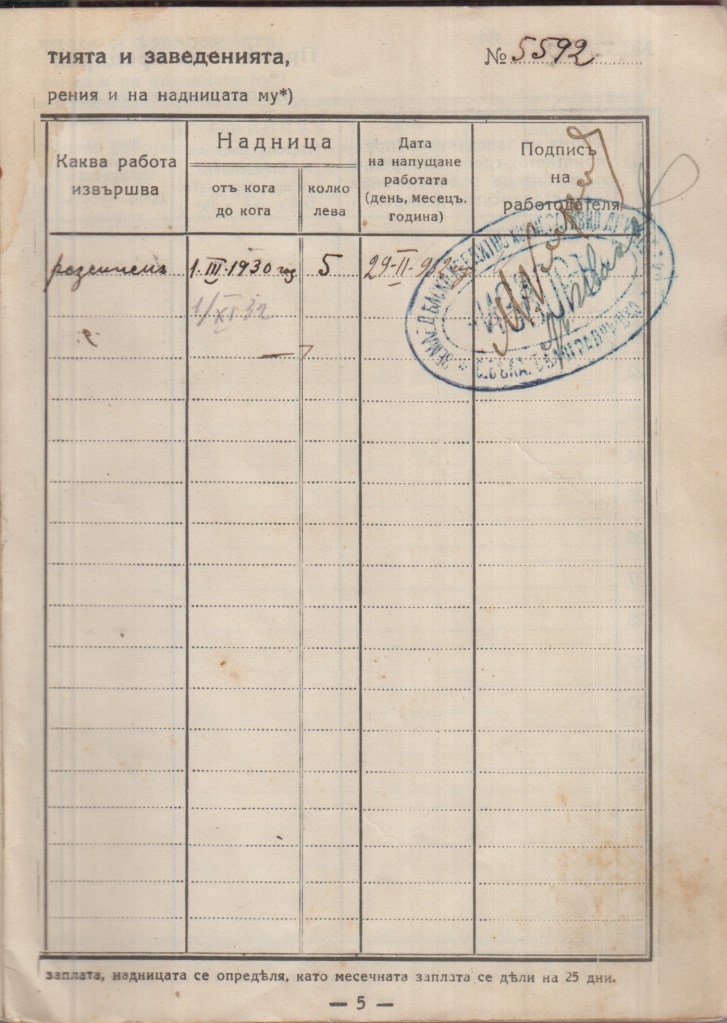 тията и заведенията,
№ 5592
рения и на надницата му*)
Каква работа
извършва
Надница
отъ кога
до кога
колко
лева
Дата
на напущане
работата
(день, месецъ,
година)
Подписъ
на
работодателя
1·III·1930 год
5
29-II-
1/XI 32
заплата, надницата се опредѣля, като месечната заплата се дѣли на 25 дни.
— 5 —